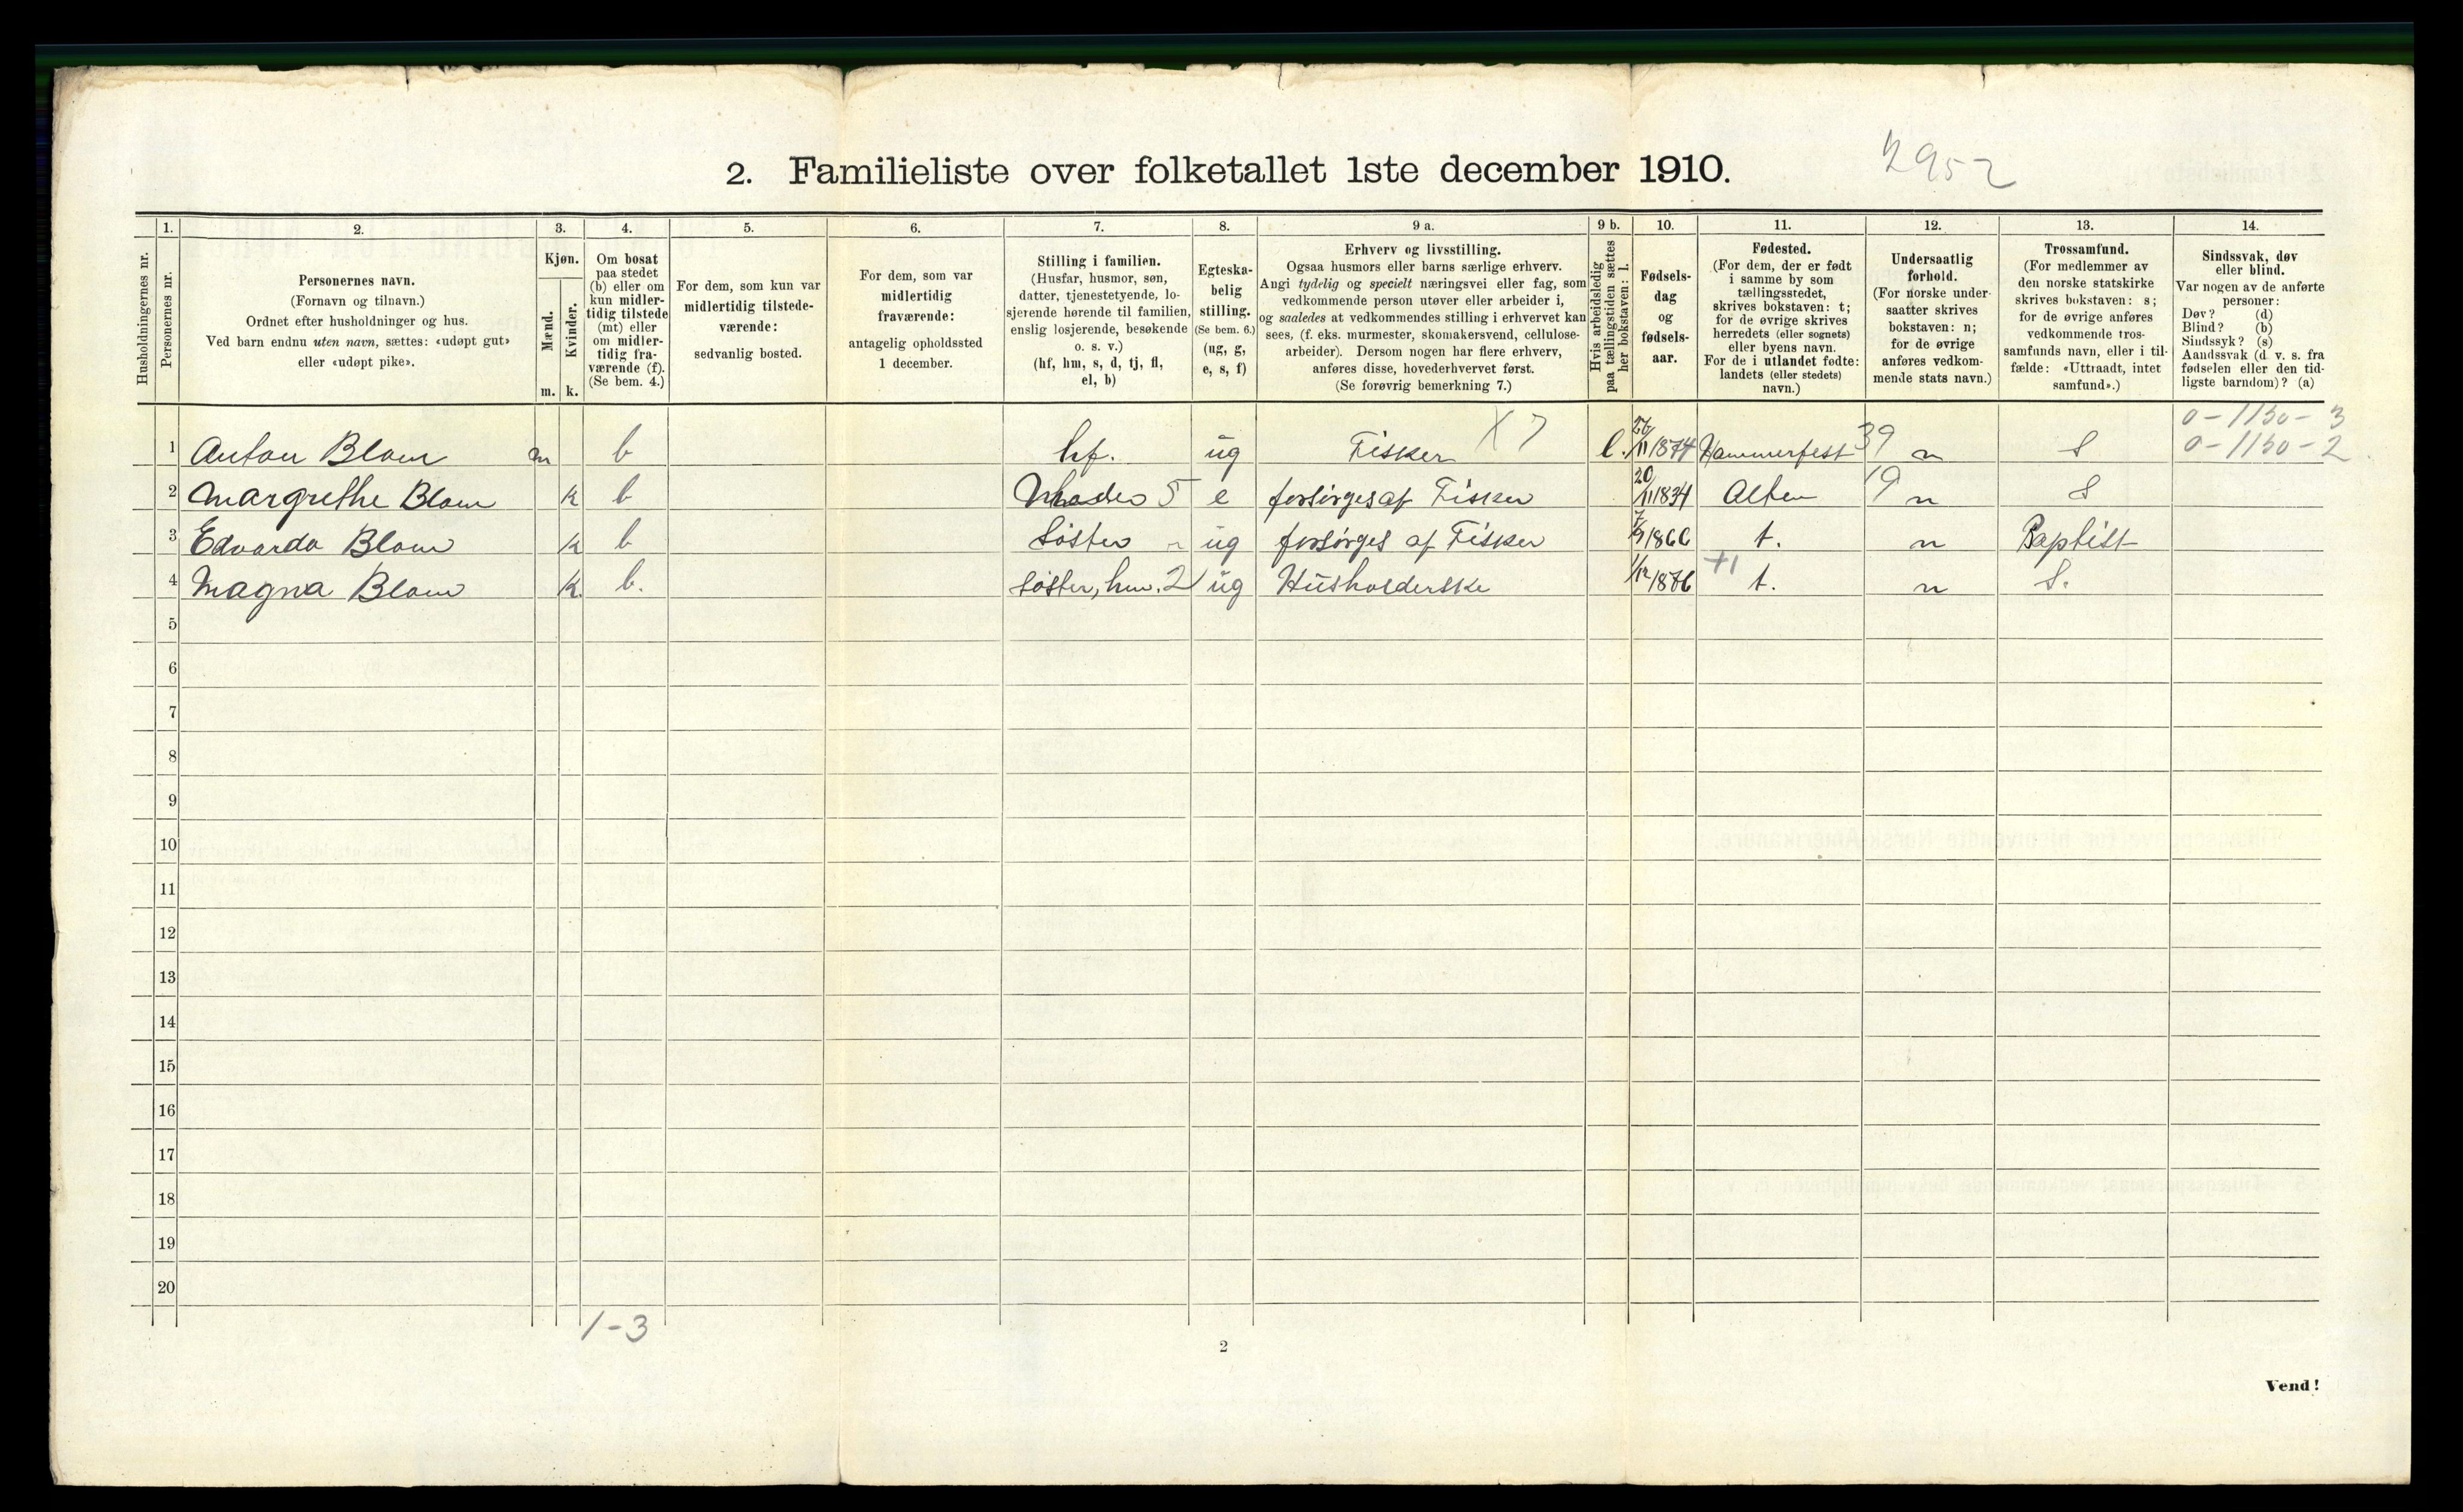 2. Familieliste over folketallet 1ste december 1910.
2952
1. 2. 3. 4. 5. 6. 7. 8. 9 a. 9 b. 10. 11. 12. 13. 14.
Husholdningernes nr.
Personernes nr.
Personernes navn.
(Fornavn og tilnavn.)
Ordnet efter husholdninger og hus.
Ved barn endnu uten navn, sættes: «udøpt gut»
eller «udøpt pike».
Kjøn.
Mænd.
Kvinder.
m. k.
Om bosat
paa stedet
(b) eller om
kun midler-
tidig tilstede
(mt) eller
om midler-
tidig fra-
værende (f).
(Se bem. 4.)
For dem, som kun var
midlertidig tilstede-
værende:
sedvanlig bosted.
For dem, som var
midlertidig
fraværende:
antagelig opholdssted
1 december.
Stilling i familien.
(Husfar, husmor, søn,
datter, tjenestetyende, lo-
sjerende hørende til familien,
enslig losjerende, besøkende
o. s. v.)
(hf, hm, s, d, tj, fl,
el, b)
Egteska-
belig
stilling.
(Se bem. 6.)
(ug, g,
e, s, f)
Erhverv og livsstilling.
Ogsaa husmors eller barns særlige erhverv.
Angi tydelig og specielt næringsvei eller fag, som
vedkommende person utøver eller arbeider i,
og saaledes at vedkommendes stilling i erhvervet kan
sees, (f. eks. murmester, skomakersvend, cellulose-
arbeider). Dersom nogen har flere erhverv,
anføres disse, hovederhvervet først.
(Se forøvrig bemerkning 7.)
Hvis arbeidsledig
paa tællingstiden sættes
her bokstaven: l.
Fødsels-
dag
og
fødsels-
aar.
Fødested.
(For dem, der er født
i samme by som
tællingsstedet,
skrives bokstaven: t;
for de øvrige skrives
herredets (eller sognets)
eller byens navn.
For de i utlandet fødte:
landets (eller stedets)
navn.)
Undersaatlig
forhold.
(For norske under-
saatter skrives
bokstaven: n;
for de øvrige
anføres vedkom-
mende stats navn.)
Trossamfund.
(For medlemmer av
den norske statskirke
skrives bokstaven: s;
for de øvrige anføres
vedkommende tros-
samfunds navn, eller i til-
fælde: «Uttraadt, intet
samfund».)
Sindssvak, døv
eller blind.
Var nogen av de anførte
personer:
Døv? (d)
Blind? (b)
Sindssyk? (s)
Aandssvak (d. v. s. fra
fødselen eller den tid-
ligste barndom)? (a)
0-1130-3
1 Anton Blom m b hf. ug Fisker X 7 l. 26/11 1874 Hammerfest 39 n S 0-1130-2
2 Margrethe Blom k b Moder 5 e forsørges af Fisker 20/11 1834 Alten 19 n S
3 Edvarda Blom k b Søster ug forsørges af Fisker 7/9 1866 t. n Baptist
4 Magna Blom k. b. Søster, hm. 2 ug Husholderske 1/12 1876 +1 t. n S.
5
6
7
8
9
10
11
12
13
14
15
16
17
18
19
20
1-3
2
Vend!